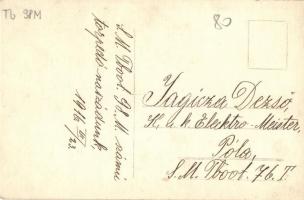 Tb 98M
80
S.M. Tboot. 98. M számu
torpedó naszádunk
1916 III/23.
Jagicza Dezső
K. u. k. Elektro-Meister,
Póla,
S. M. Tboot. 76. T.